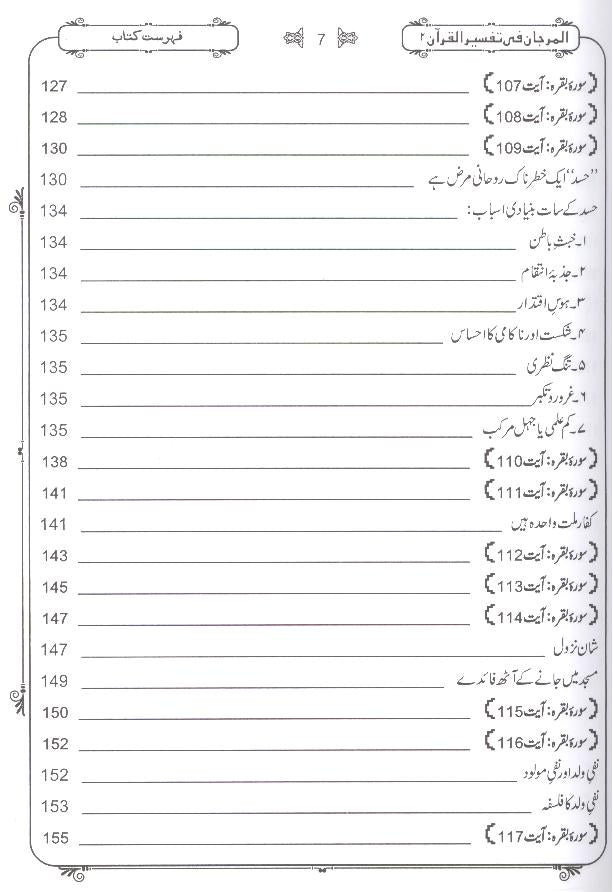 المرجان فی تفسیر القرآن ۲ 7 فہرست کتاب
سورۂ بقرہ: آیت 107 127
سورۂ بقرہ: آیت 108 128
سورۂ بقرہ: آیت 109 130
’’حسد‘‘ ایک خطرناک روحانی مرض ہے 130
حسد کے سات بنیادی اسباب: 134
۱۔ خبثِ باطن 134
۲۔ جذبۂ انتقام 134
۳۔ ہوسِ اقتدار 134
۴۔ شکست اور ناکامی کا احساس 135
۵۔ تنگ نظری 135
۶۔ غرور و تکبر 135
۷۔ کم علمی یا جہل مرکب 135
سورۂ بقرہ: آیت 110 138
سورۂ بقرہ: آیت 111 141
کفار ملت واحدہ ہیں 141
سورۂ بقرہ: آیت 112 143
سورۂ بقرہ: آیت 113 145
سورۂ بقرہ: آیت 114 147
شان نزول 147
مسجد میں جانے کے آٹھ فائدے 149
سورۂ بقرہ: آیت 115 150
سورۂ بقرہ: آیت 116 152
نفیِ ولد اور نفیِ مولود 152
نفیِ ولد کا فلسفہ 153
سورۂ بقرہ: آیت 117 155